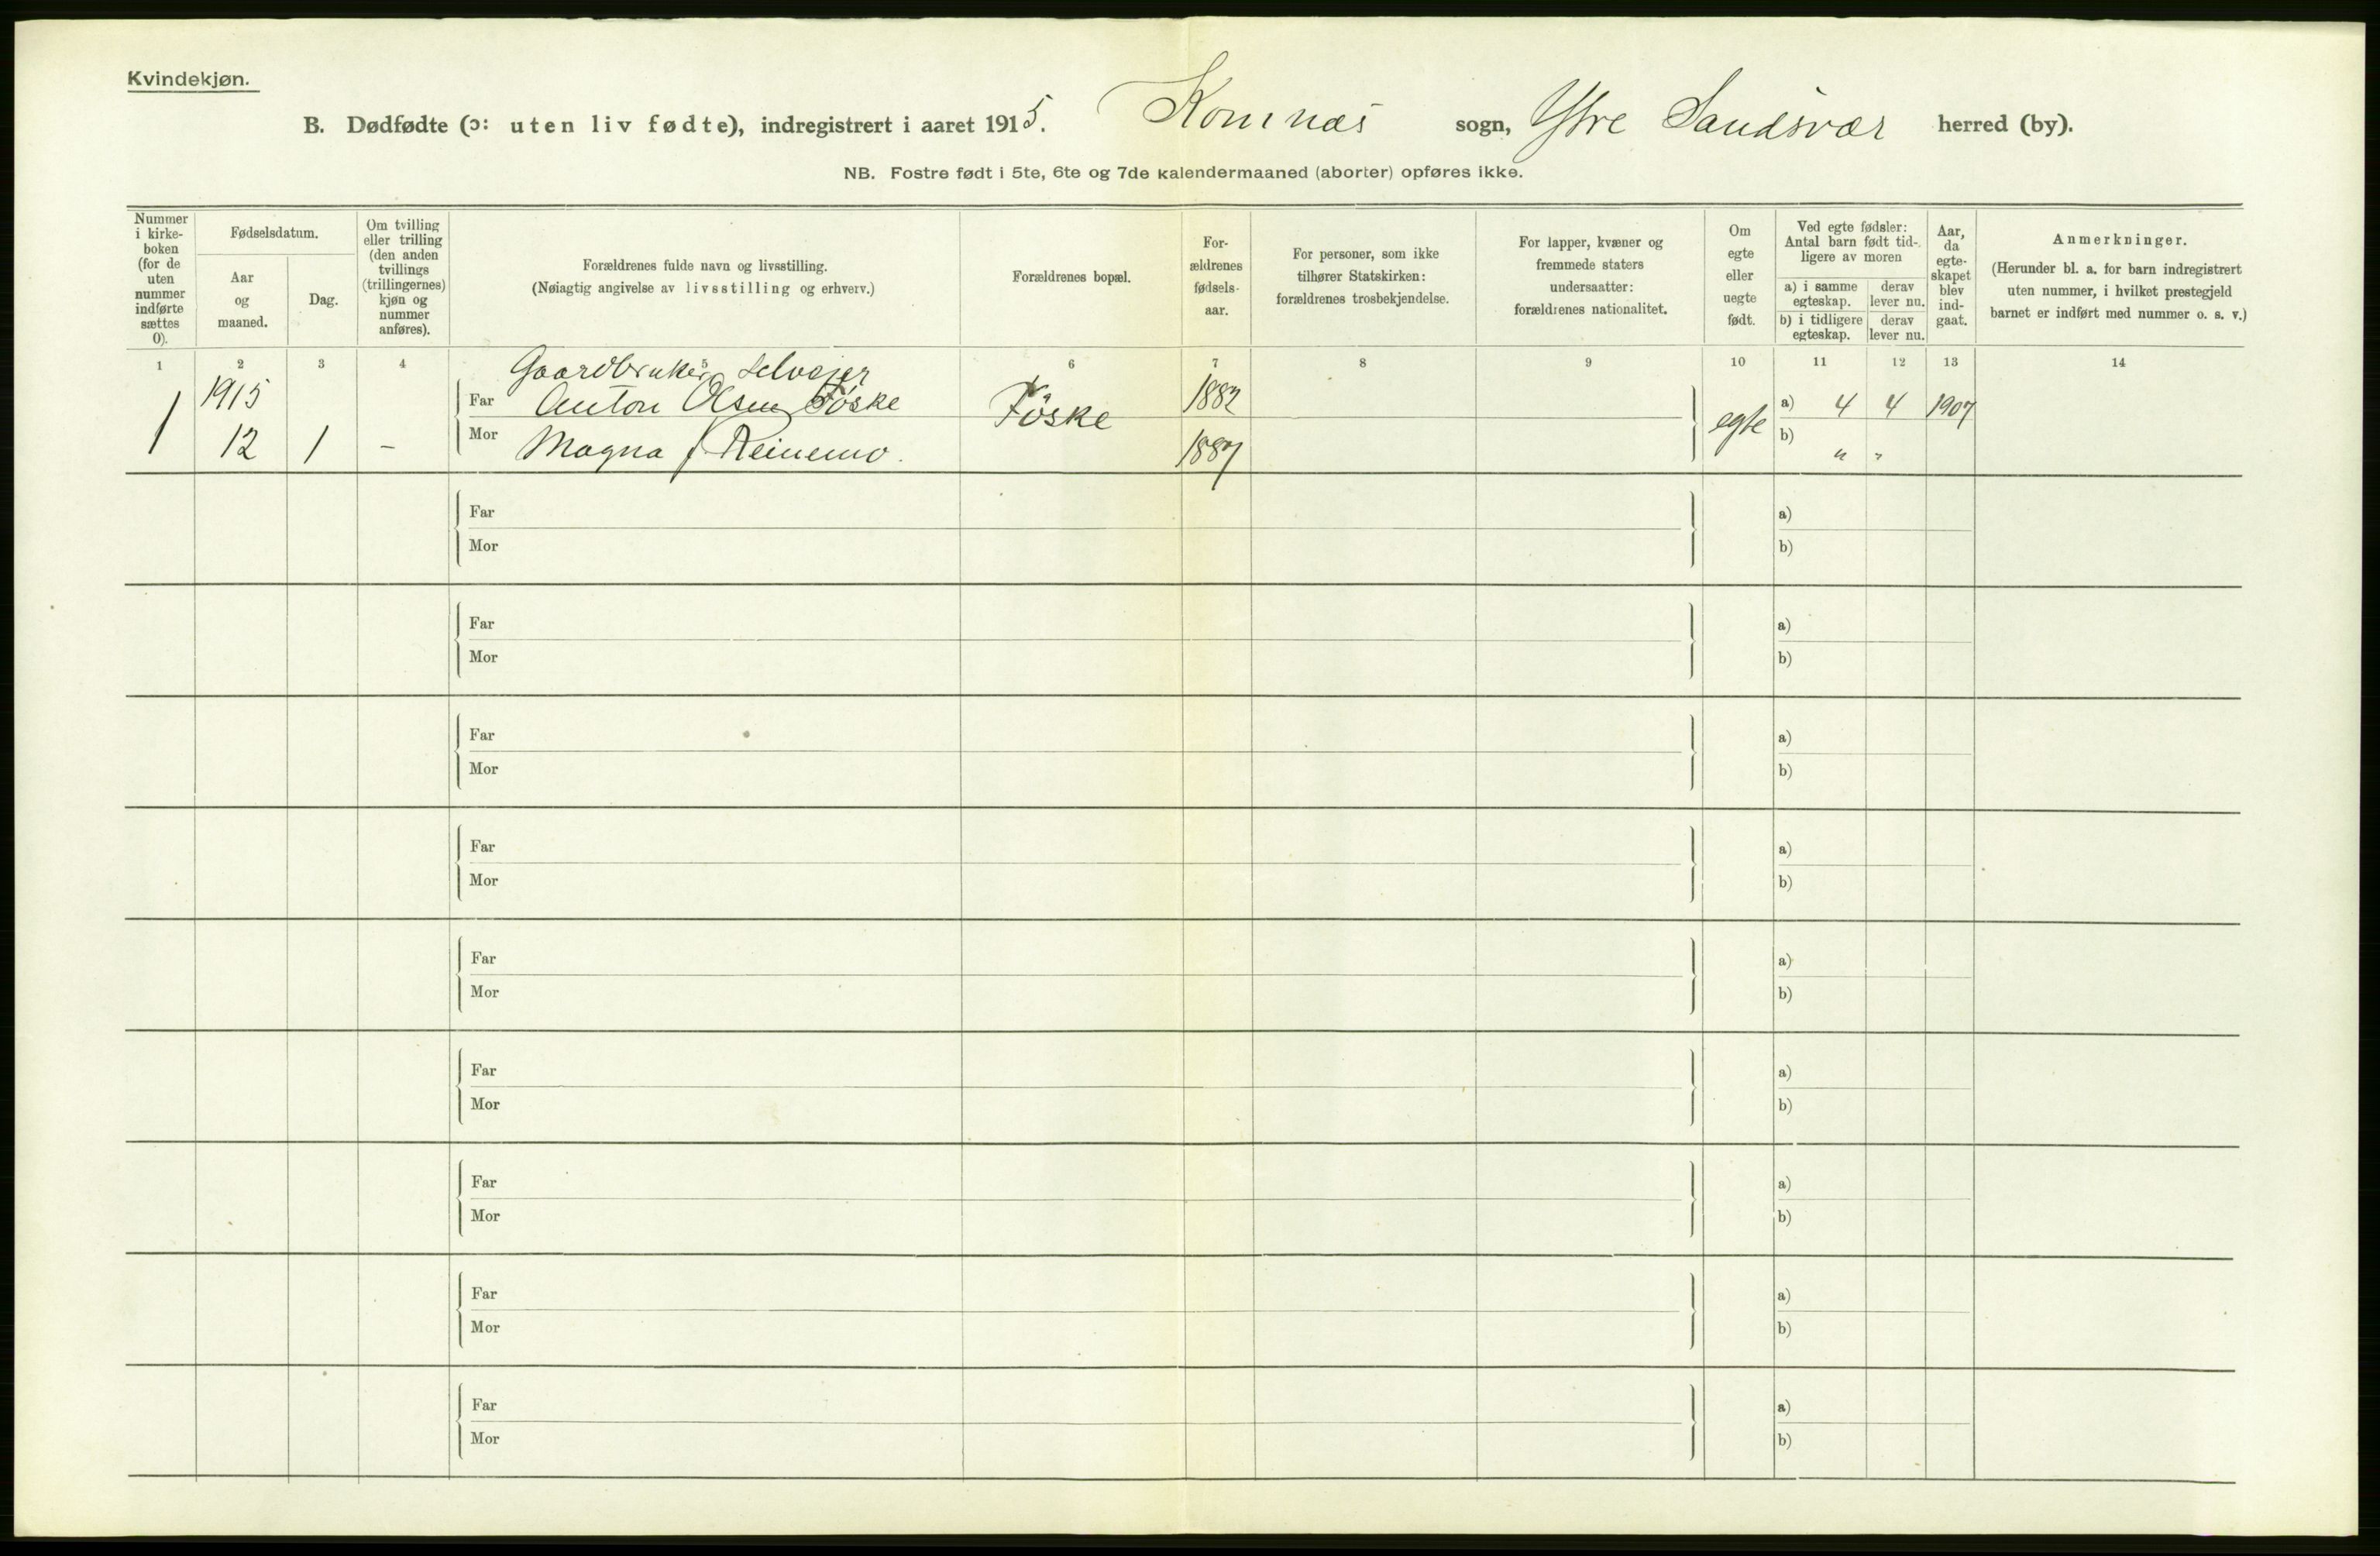 Kvindekjøn.
B. Dødfødte (ɔ: uten liv fødte), indregistrert i aaret 1915. Komnæs sogn, Ytre Sandsvær herred (by).
NB. Fostre født i 5te, 6te og 7de kalendermaaned (aborter) opføres ikke.
Nummer i kirke- boken (for de uten nummer indførte sættes 0).
Fødselsdatum.
Aar og maaned.
Dag.
Om tvilling eller trilling (den anden tvillings (trillingernes) kjøn og nummer anføres).
Forældrenes fulde navn og livsstilling.
(Nøiagtig angivelse av livsstilling og erhverv.)
Forældrenes bopæl.
For- ældrenes fødsels- aar.
For personer, som ikke tilhører Statskirken: forældrenes trosbekjendelse.
For lapper, kvæner og fremmede staters undersaatter: forældrenes nationalitet.
Om egte eller uegte født.
Ved egte fødsler: Antal barn født tid- ligere av moren
a) i samme egteskap.
derav lever nu.
b) i tidligere egteskap.
derav lever nu.
Aar, da egte- skapet blev ind- gaat.
Anmerkninger.
(Herunder bl. a. for barn indregistrert uten nummer, i hvilket prestegjeld barnet er indført med nummer o. s. v.)
1 2 3 4 5 6 7 8 9 10 11 12 13 14
Gaardbruker, Selveier
1915 Far Anton Olsen Føske Føske 1882 a) 4 4 1907
1 12 1 – Mor Magna f Reinemo. 1887 egte b) " "
Far a)
Mor b)
Far a)
Mor b)
Far a)
Mor b)
Far a)
Mor b)
Far a)
Mor b)
Far a)
Mor b)
Far a)
Mor b)
Far a)
Mor b)
Far a)
Mor b)